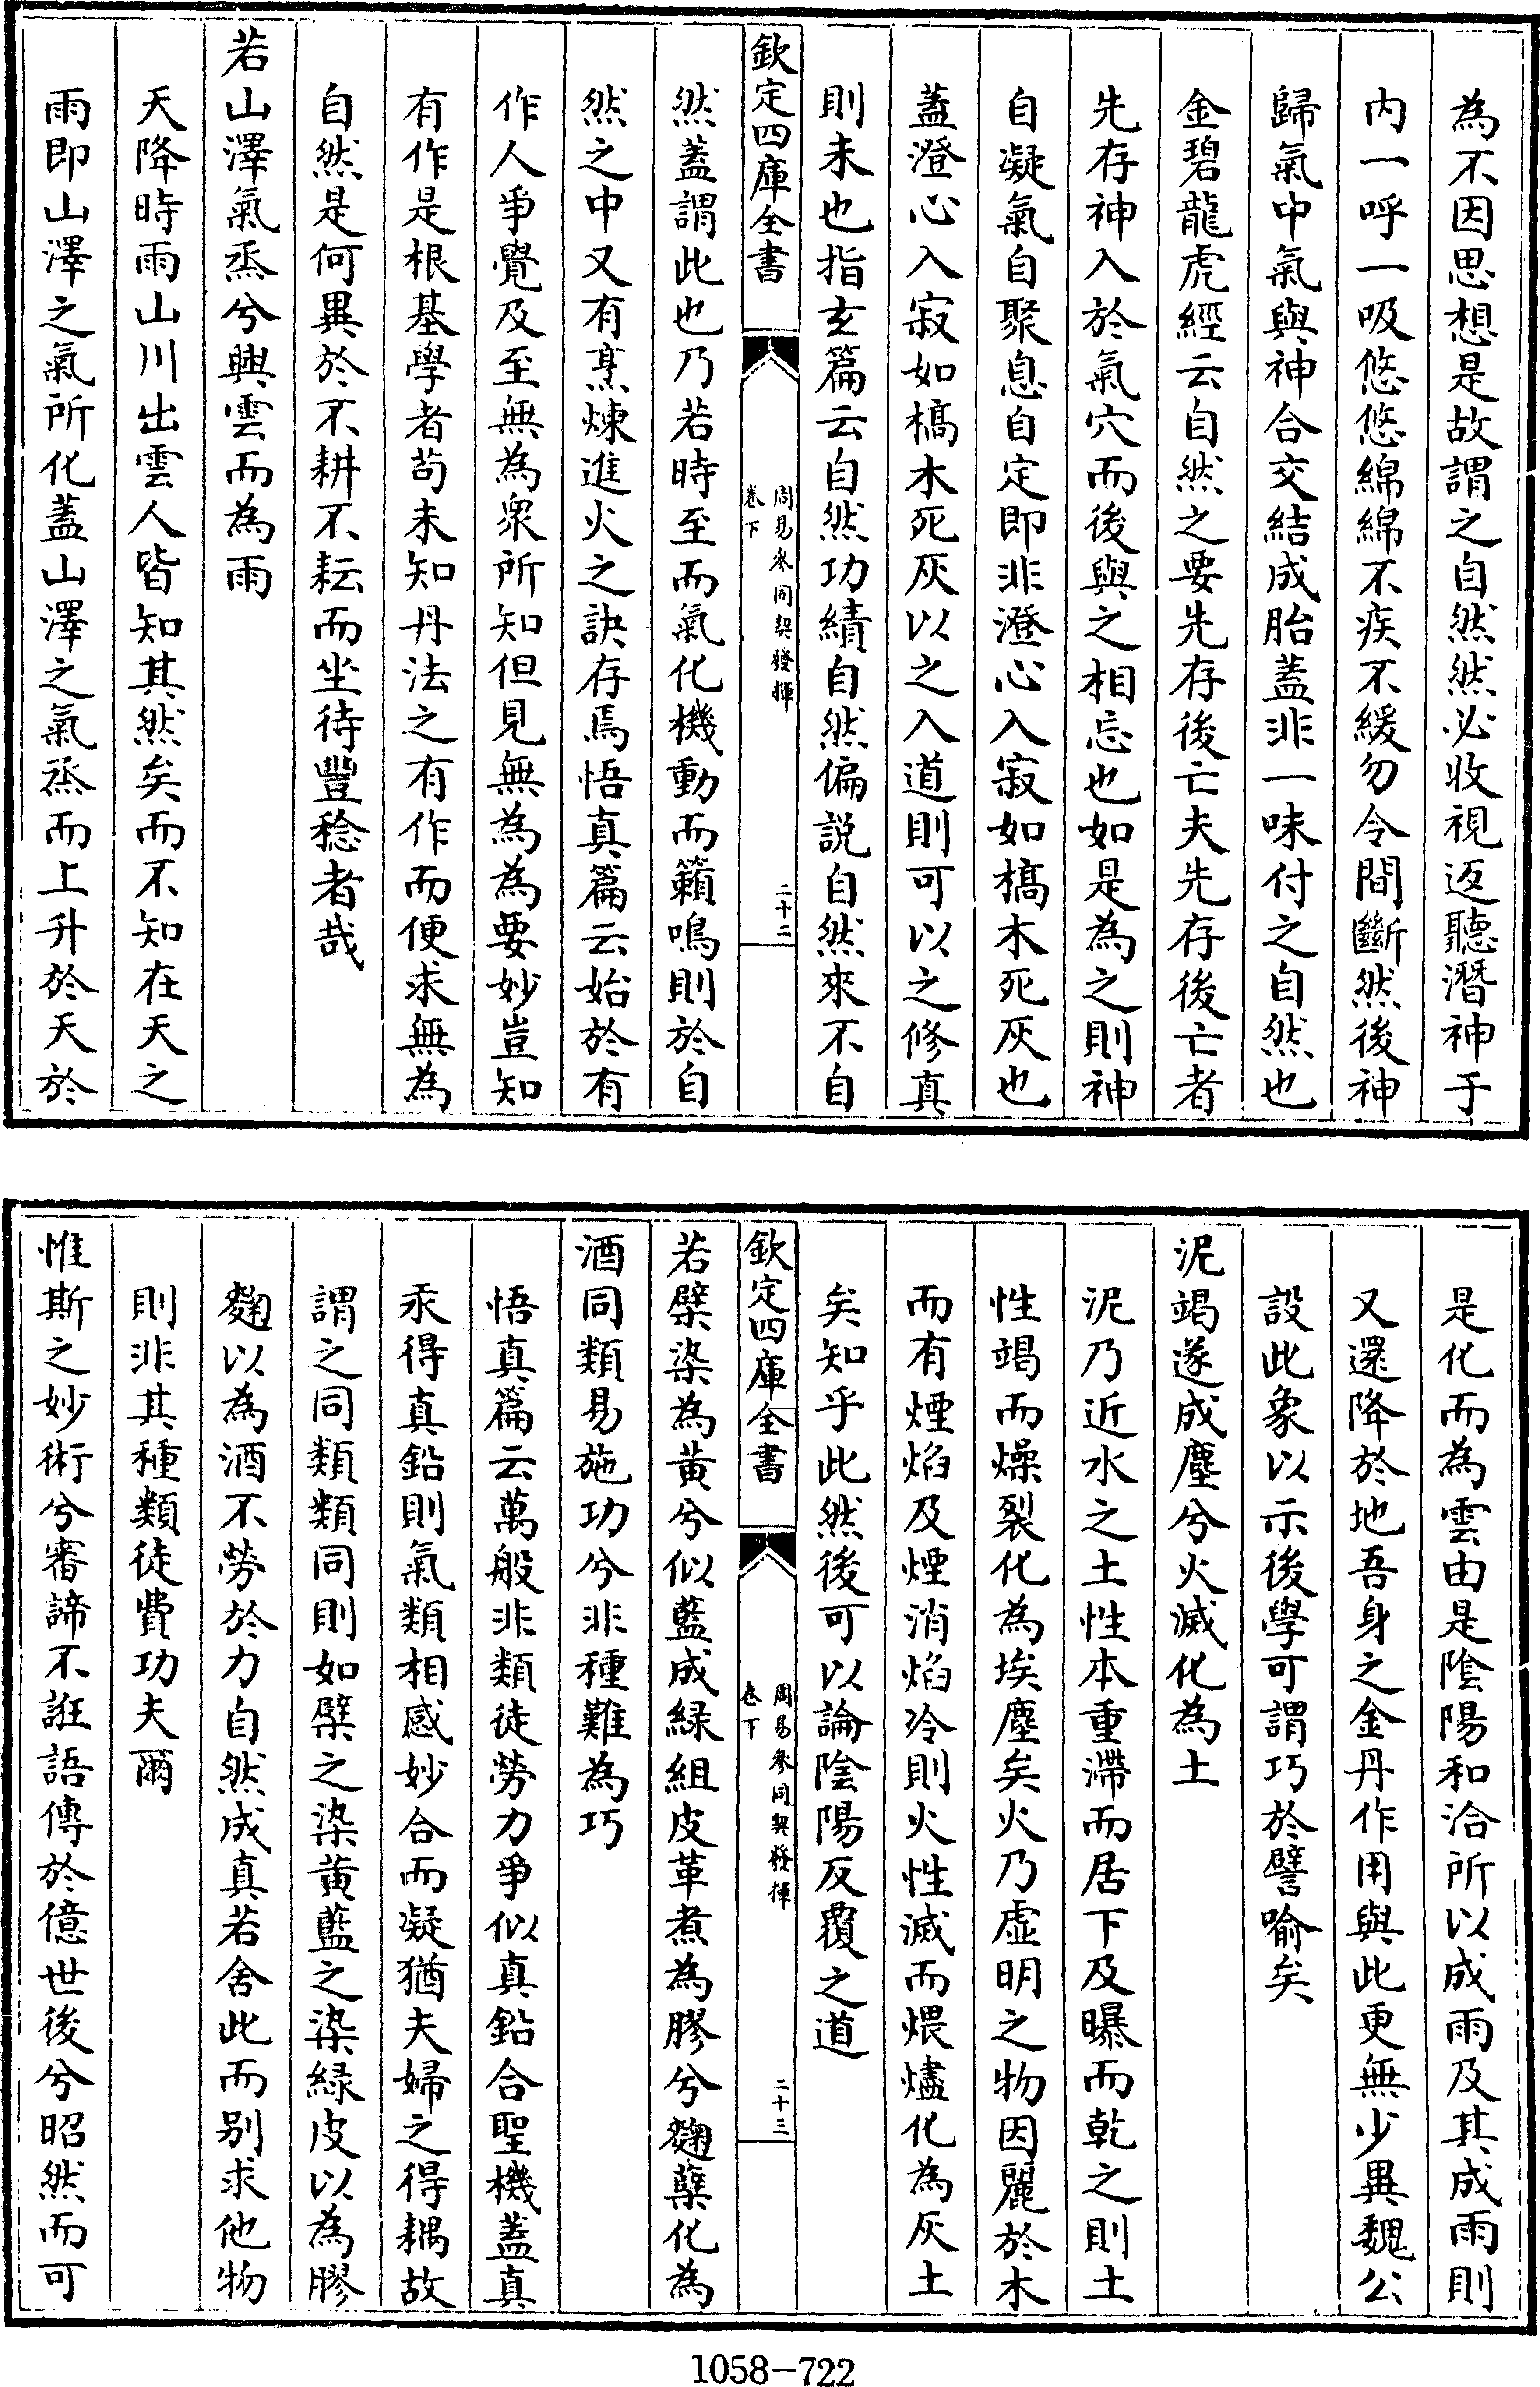 為不因思想是故謂之自然然必收視返聽潛神于
内一呼一吸悠悠綿綿不疾不緩勿令間斷然後神
歸氣中氣與神合交結成胎蓋非一味付之自然也
金碧龍虎經云自然之要先存後亡夫先存後亡者
先存神入於氣穴而後與之相忘也如是為之則神
自凝氣自聚息自定即非澄心入寂如槁木死灰也
蓋澄心入寂如槁木死灰以之入道則可以之修真
則未也指玄篇云自然功績自然偏説自然來不自
欽定四庫全書
周易參同契發揮
卷下
二十二
然蓋謂此也乃若時至而氣化機動而籟鳴則於自
然之中又有烹煉進火之訣存焉悟真篇云始於有
作人爭覺及至無為衆所知但見無為為要妙豈知
有作是根基學者茍未知丹法之有作而便求無為
自然是何異於不耕不耘而坐待豐稔者哉
若山澤氣烝兮興雲而為雨
天降時雨山川出雲人皆知其然矣而不知在天之
雨即山澤之氣所化蓋山澤之氣烝而上升於天於
是化而為雲由是陰陽和洽所以成雨及其成雨則
又還降於地吾身之金丹作用與此更無少異魏公
設此象以示後學可謂巧於譬喻矣
泥竭遂成塵兮火滅化為土
泥乃近水之土性本重滯而居下及曝而乾之則土
性竭而燥裂化為埃塵矣火乃虚明之物因麗於木
而有煙焰及煙消焰冷則火性滅而煨燼化為灰土
矣知乎此然後可以論陰陽反覆之道
欽定四庫全書
周易參同契發揮
卷下
二十三
若檗染為黄兮似藍成緑組皮革煮為膠兮麴蘖化為
酒同類易施功兮非種難為巧
悟真篇云萬般非類徒勞力爭似真鉛合聖機蓋真
汞得真鉛則氣類相感妙合而凝猶夫婦之得耦故
謂之同類類同則如檗之染黄藍之染緑皮以為膠
麴以為酒不勞於力自然成真若舍此而别求他物
則非其種類徒費功夫爾
惟斯之妙術兮審諦不誑語傳於億世後兮昭然而可
1058-722